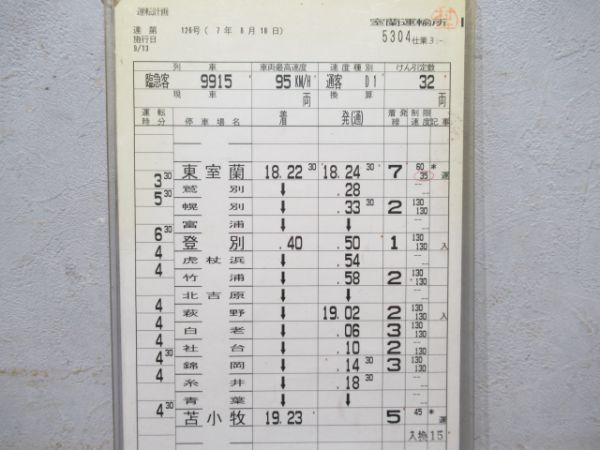 運転計画
室蘭運輸所
達第 126号 ( 7 年 8 月 18 日 )
5304 仕業
施行日
9/13
列車 車両最高速度 速度種別 けん引定数
臨急客 9915 95 KM/H 通客 D1 32
現車 両 換算 両
運転時分 停車場名 着 発(通) 着発線 制限速度 記事
東室蘭 18.22 30 18.24 30 7 60 35 * 運
3 30
鷲別 ↓ .28
5 30
幌別 ↓ .33 30 2 130 130
富浦 ↓ ↓
6 30
登別 .40 .50 1 130 130 入
4
虎杖浜 ↓ .54
4
竹浦 ↓ .58 2 130 130
北吉原 ↓ ↓
4
萩野 ↓ 19.02 2 130 130 入
4
白老 ↓ .06 3 130 130
4
社台 ↓ .10 2 130 130
4 30
錦岡 ↓ .14 30 3 130 130
4
糸井 ↓ .18 30
青葉 ↓ ↓
4 30
苫小牧 19.23 5 45 * 運
入換 15